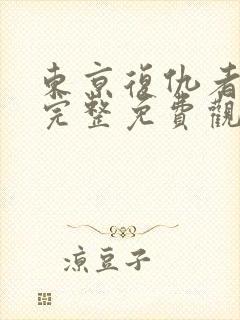 東京復仇者
完整免費觀
涼豆子